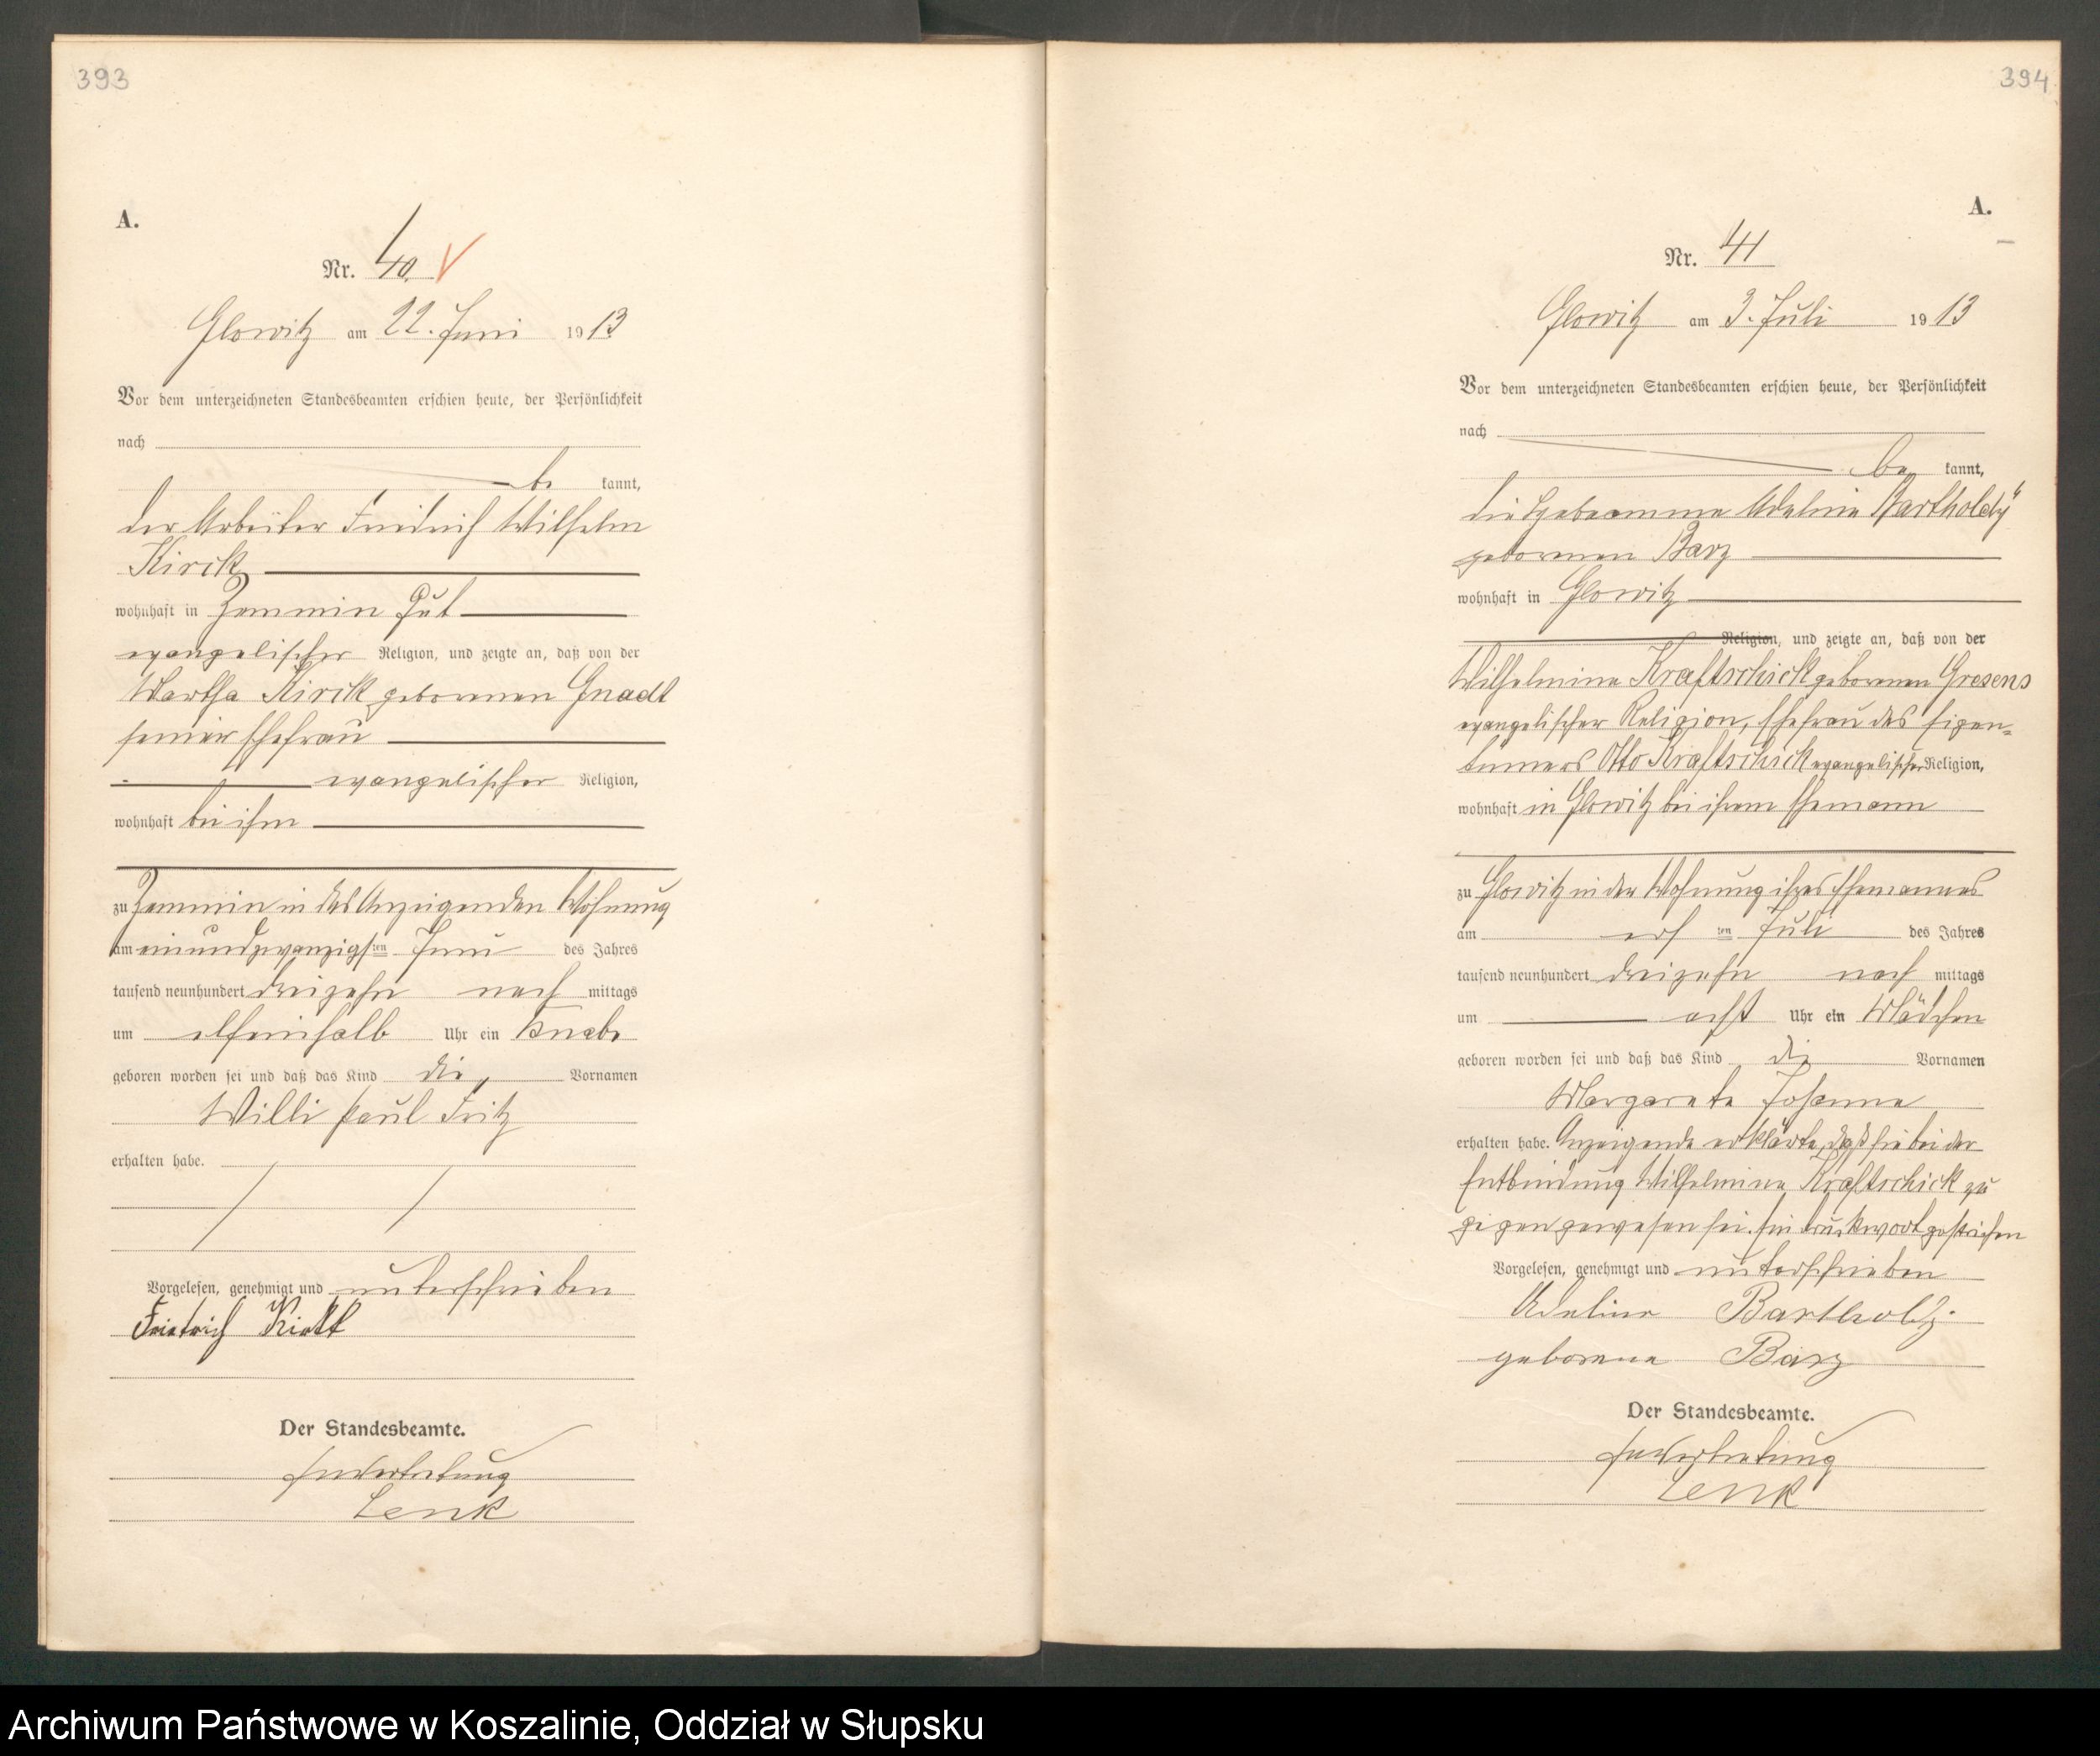 393
A.
Nr. 40.
Glowitz am 22. Juni 1913
Vor dem unterzeichneten Standesbeamten erschien heute, der Persönlichkeit
nach
be kannt,
der Arbeiter Friedrich Wilhelm
Kirck
wohnhaft in Zemmin Gut
evangelischer Religion, und zeigte an, daß von der
Martha Kirck geborenen Gnadt
seiner Ehefrau
evangelischer Religion,
wohnhaft bei ihm
zu Zemmin in des Anzeigenden Wohnung
am einundzwanzigsten Juni des Jahres
tausend neunhundert dreizehn nach mittags
um elfeinhalb Uhr ein Knabe
geboren worden sei und daß das Kind die Vornamen
Willi Paul Fritz
erhalten habe.
Vorgelesen, genehmigt und unterschrieben
Friedrich
Der Standesbeamte.
In Vertretung
Lenk
394
A.
Nr. 41
Glowitz am 3. Juli 1913
Vor dem unterzeichneten Standesbeamten erschien heute, der Persönlichkeit
nach
be kannt,
die Hebeamme Adeline Bartholdy
geborenen Barz
wohnhaft in Glowitz
Religion, und zeigte an, daß von der
Wilhelmine Kraftschick geborenen Gresens
evangelischer Religion, Ehefrau des Eigen-
tümers Otto Kraftschick evangelischer Religion,
wohnhaft in Glowitz bei ihrem Ehemann
zu Glowitz in der Wohnung ihres Ehemannes
am ersten Juli des Jahres
tausend neunhundert dreizehn nach mittags
um acht Uhr ein Mädchen
geboren worden sei und daß das Kind die Vornamen
Margarete Johanne
erhalten habe. Anzeigende erklärte, daß sie bei der
Entbindung Wilhelmine Kraftschick zu
gegen gewesen sei. Ein Druckwort gestrichen
Vorgelesen, genehmigt und unterschrieben
Adeline Bartholdy.
geborene Barz
Der Standesbeamte.
In Vertretung
Lenk
Archiwum Państwowe w Koszalinie, Oddział w Słupsku